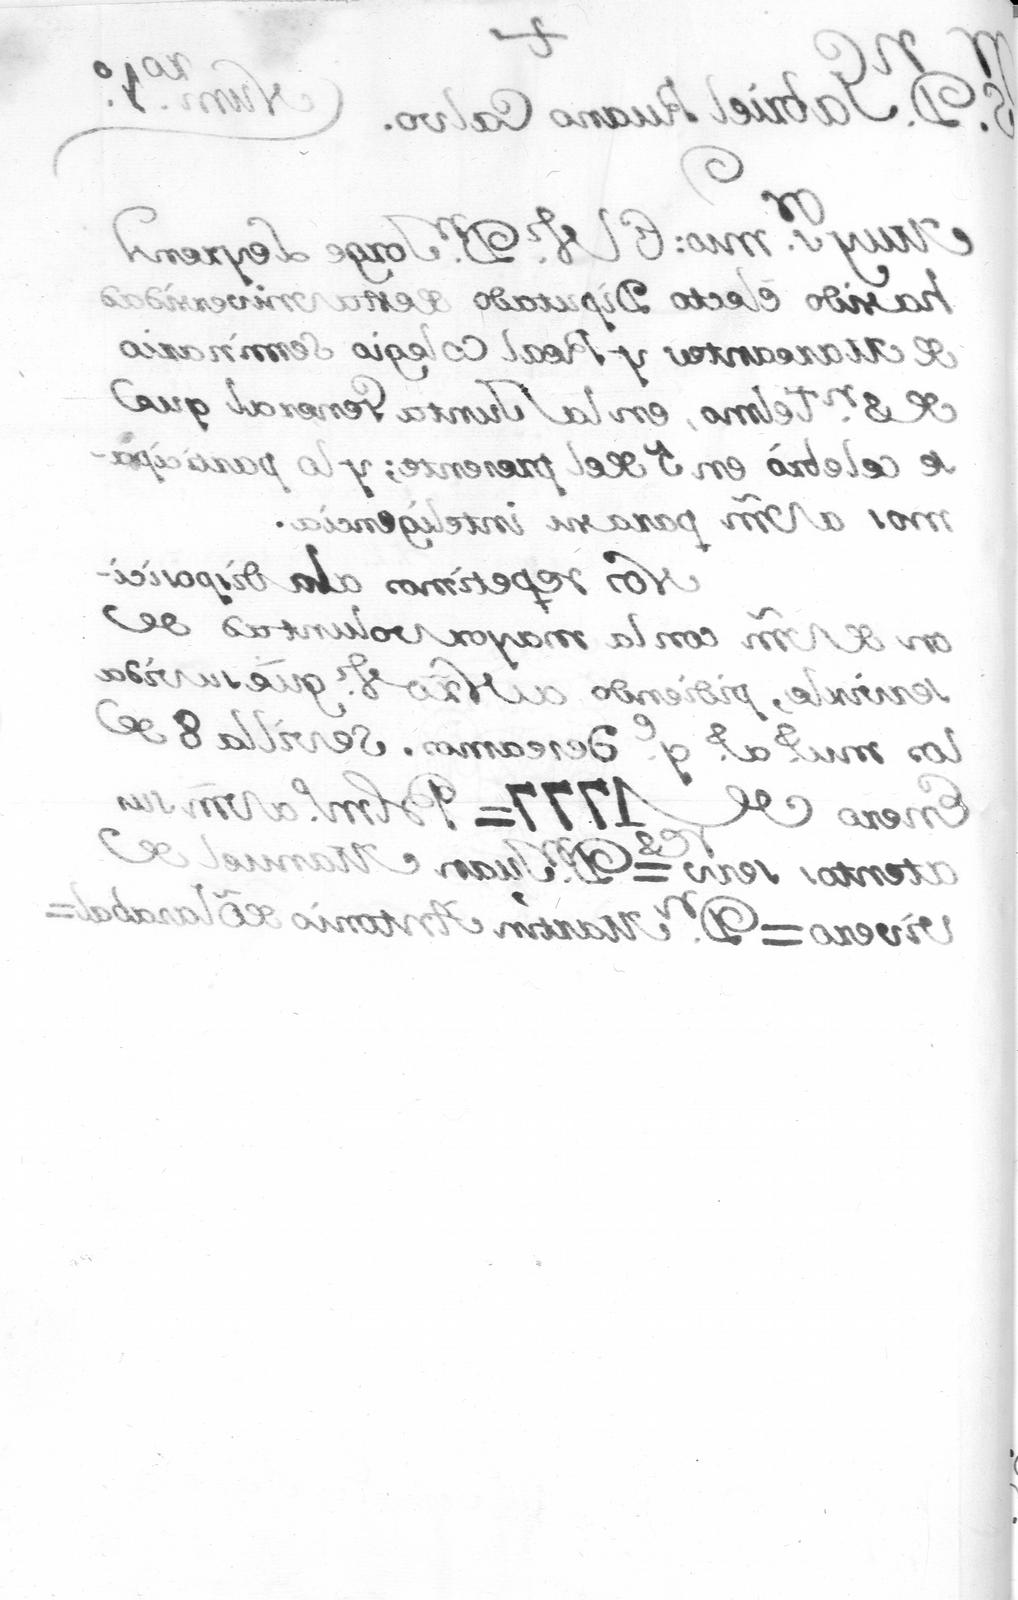 +
S.r D.n Gabriel Ruano Calvo. Num.ro 1.º
Muy s.r mio: El S.r D.n Jorge Leyrens
ha sido electo Diputado de esta universidad
de Mareantes y Real Colegio Seminario
de S.n Telmo, en la Junta General que
se celebró en 5 del presente; y lo participa-
mos a Vm̃ para su inteligencia.
Nos repetimos a la disposici-
on de Vm̃ con la mayor voluntad de
servirle, pidiendo a Ntr̃o S.r gũe su vida
los mu.s a.s q.e deseamos. Sevilla 8 de
Enero de 1777= B l m.o a Vm̃ sus
atentos serv.res = D.n Juan Manuel de
Vivero = D.n Martin Antonio de Olazabal=